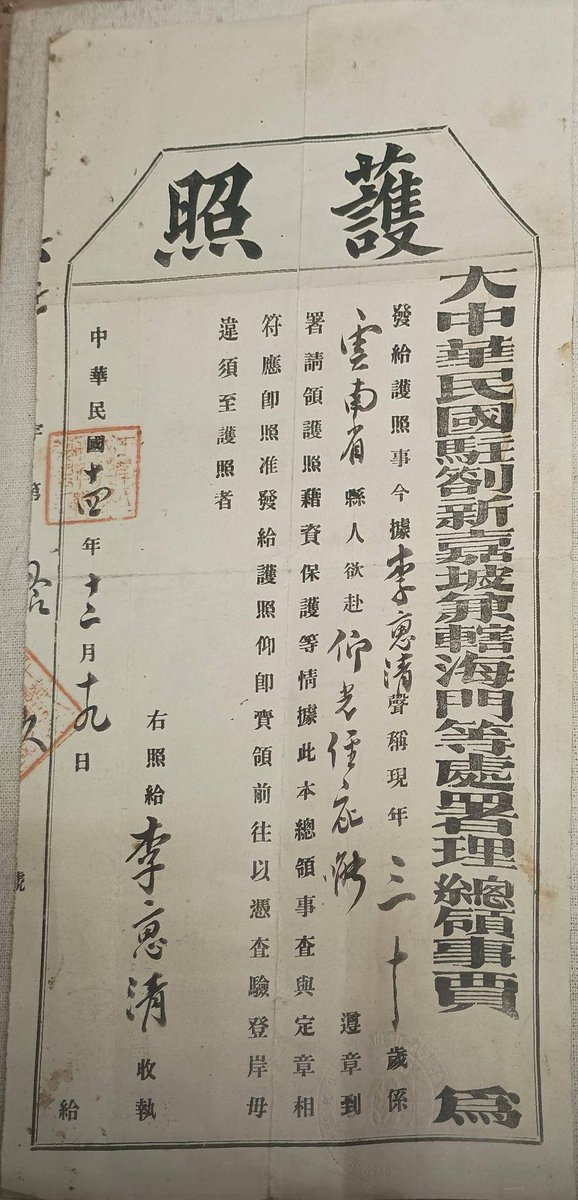 護照
大中華民國駐劄新嘉坡兼轄海門等處署理總領事賈 為
發給護照事今據李惠清聲稱現年三十歲係
雲南省縣人欲赴仰光 遵章到
署請領護照藉資保護等情據此本總領事查與定章相
符應卽照准發給護照仰卽賫領前往以憑查驗登岸毋
違須至護照者
右照給李惠清收執
中華民國十四年十二月十九日 給
字第 號